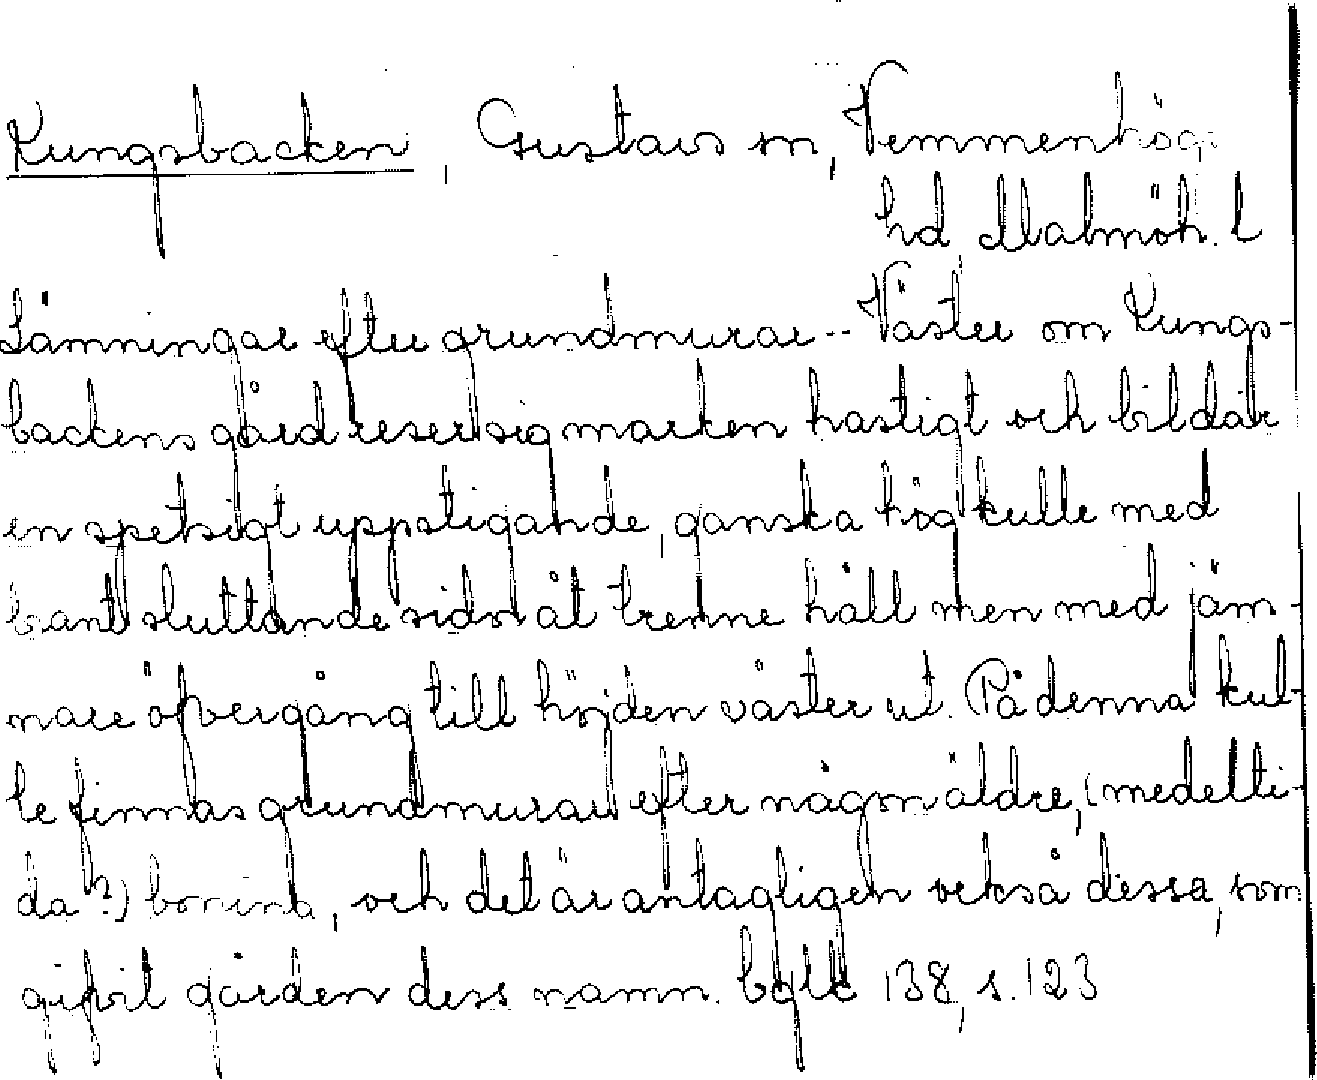 Kungsbacken, Gustavs sn, Vemmenhögs
hd Malmöh. l
Lämningar efter grundmurar -- Väster om Kungs-
backens gård reser sig marken hastigt och bildar
en spetsigt uppstigande, ganska hög kulle med
brant sluttande sidor åt trenne håll men med jäm-
nare öfvergång till höjden väster ut. På denna kul-
le finnas grundmurar efter någon äldre, (medelti-
da?) boning, och det är antagligen också dessa, som
gifvit gården dess namn. 138, s. 123